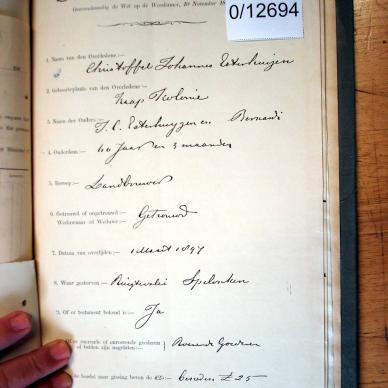 0/12694
Overeenkomstig de Wet op de Weeskamer, 10 November 18
1. Naam van den Overledene:— Christoffel Johannes Esterhuizen
2. Geboorteplaats van den Overledene:—
Kaap Kolonie
3. Namen der Ouders:— J. C. Esterhuyzen en
4. Ouderdom:— 60 Jaar en 3 maanden
5. Beroep:— Landbouwer
6. Getrouwd of ongetrouwd:— Getrouwd
Weduwnaar of Weduwe:—
7. Datum van overlijden:— 1 Maart 1897
8. Waar gestorven:— Spelonken
9. Of er testament bekend is:— Ja
Of er onroerende goederen
zijn nagelaten:— Roerende Goederen
£25